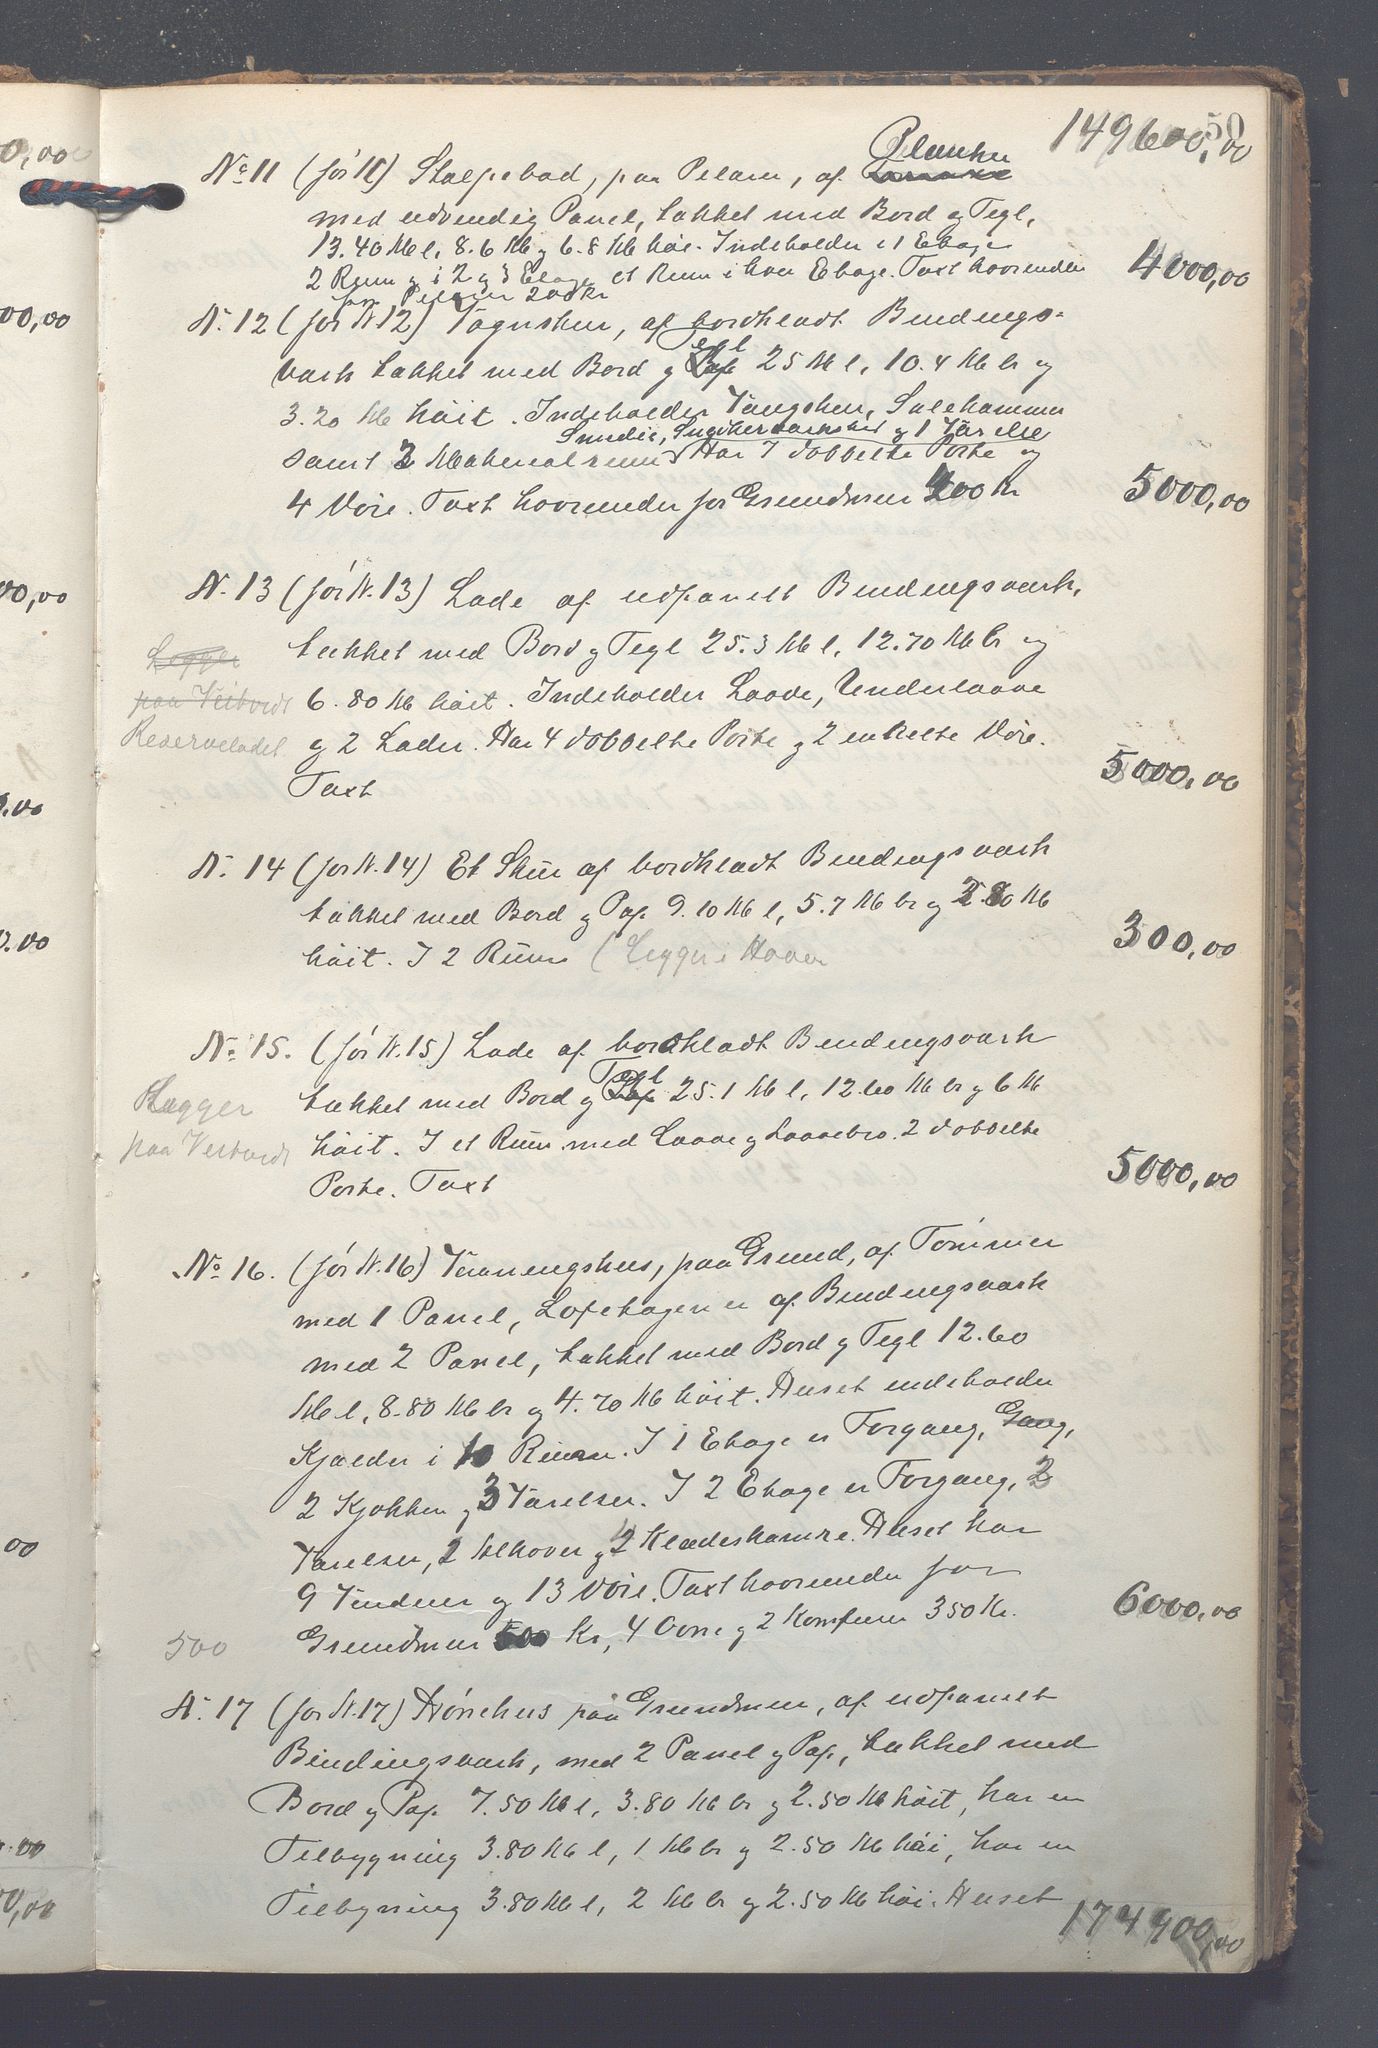 50
149600,00
No 11 (før 11) Stolpebod, paa Pelarer, af Planker
med udvendig Panel, tækket med Bord og Tegl,
13.40 M l, 8.6 M og 6.8 M høi. Indeholder i 1 Etage
2 Rum og i 2 og 3 Etage et Rum i hver Etage. Taxt hvorunder 4000,00
for Pelarer 200 Kr
N. 12 (før N. 12) Vognskur, af bordklædt Bindings-
værk tækket med Bord og Tegl 25 M l, 10.4 M br og
3.20 M høit. Indeholder Vognskur, Selekammer
Smedie, Snedkerværksted og 1 Værelse
samt 2 Materialrum. Har 7 dobbelte Porte og
4 Døre. Taxt hvorunder for Grundmur 400 Kr 5000,00
N. 13 (før N. 13) Lade af udpanelt Bindingsværk,
Ligger
tækket med Bord og Tegl 25.3 M l, 12.70 M br og
paa Veitvedt
6.80 M høit. Indeholder Laave, Underlaave
Reserveladet
og 2 Lader. Har 4 dobbelte Porte og 2 enkelte Døre.
Taxt 5000,00
N. 14 (før N. 14) Et Skur af bordklædt Bindingsværk
tækket med Bord og Pap 9.10 M l, 5.7 M br og 2.80 M
høit. I 2 Rum (Ligger i Haven 300,00
No 15. (før N. 15) Lade af bordklædt Bindingsværk
Ligger
tækket med Bord og Tegl 25.1 M l, 12.60 M br og 6 M
paa Veitvedt
høit. I et Rum med Laave og Laavebro. 2 dobbelte
Porte. Taxt 5000,00
No 16. (før N. 16) Vaaningshus, paa Grund, af Tømmer
med 1 Panel, Loftetagen er af Bindingsværk
med 2 Panel, tækket med Bord og Tegl 12.60
M l, 8.80 M br og 4.70 M høit. Huset indeholder
Kjælder i 10 Rum. I 1 Etage er Forgang, Gang,
2 Kjøkken og 3 Værelser. I 2 Etage er Forgang, 2
Værelser, 2 Alkover og 2 Klædeskamre. Huset har
9 Vinduer og 13 Døre. Taxt hvorunder for
500 Grundmur 500 Kr, 4 Ovne og 2 Komfurer 350 Kr. 6000,00
N. 17 (før N. 17) Hønsehus paa Grundmur, af udpanelt
Bindingsværk, med 2 Panel og Pap, tækket med
Bord og Pap 7.50 M l, 3.80 M br og 2.50 M høit, har en
Tilbygning 3.80 M l, 1 M br og 2.50 M høi, har en
Tilbygning 3.80 M l, 2 M br og 2.50 M høi. Huset
174900,00